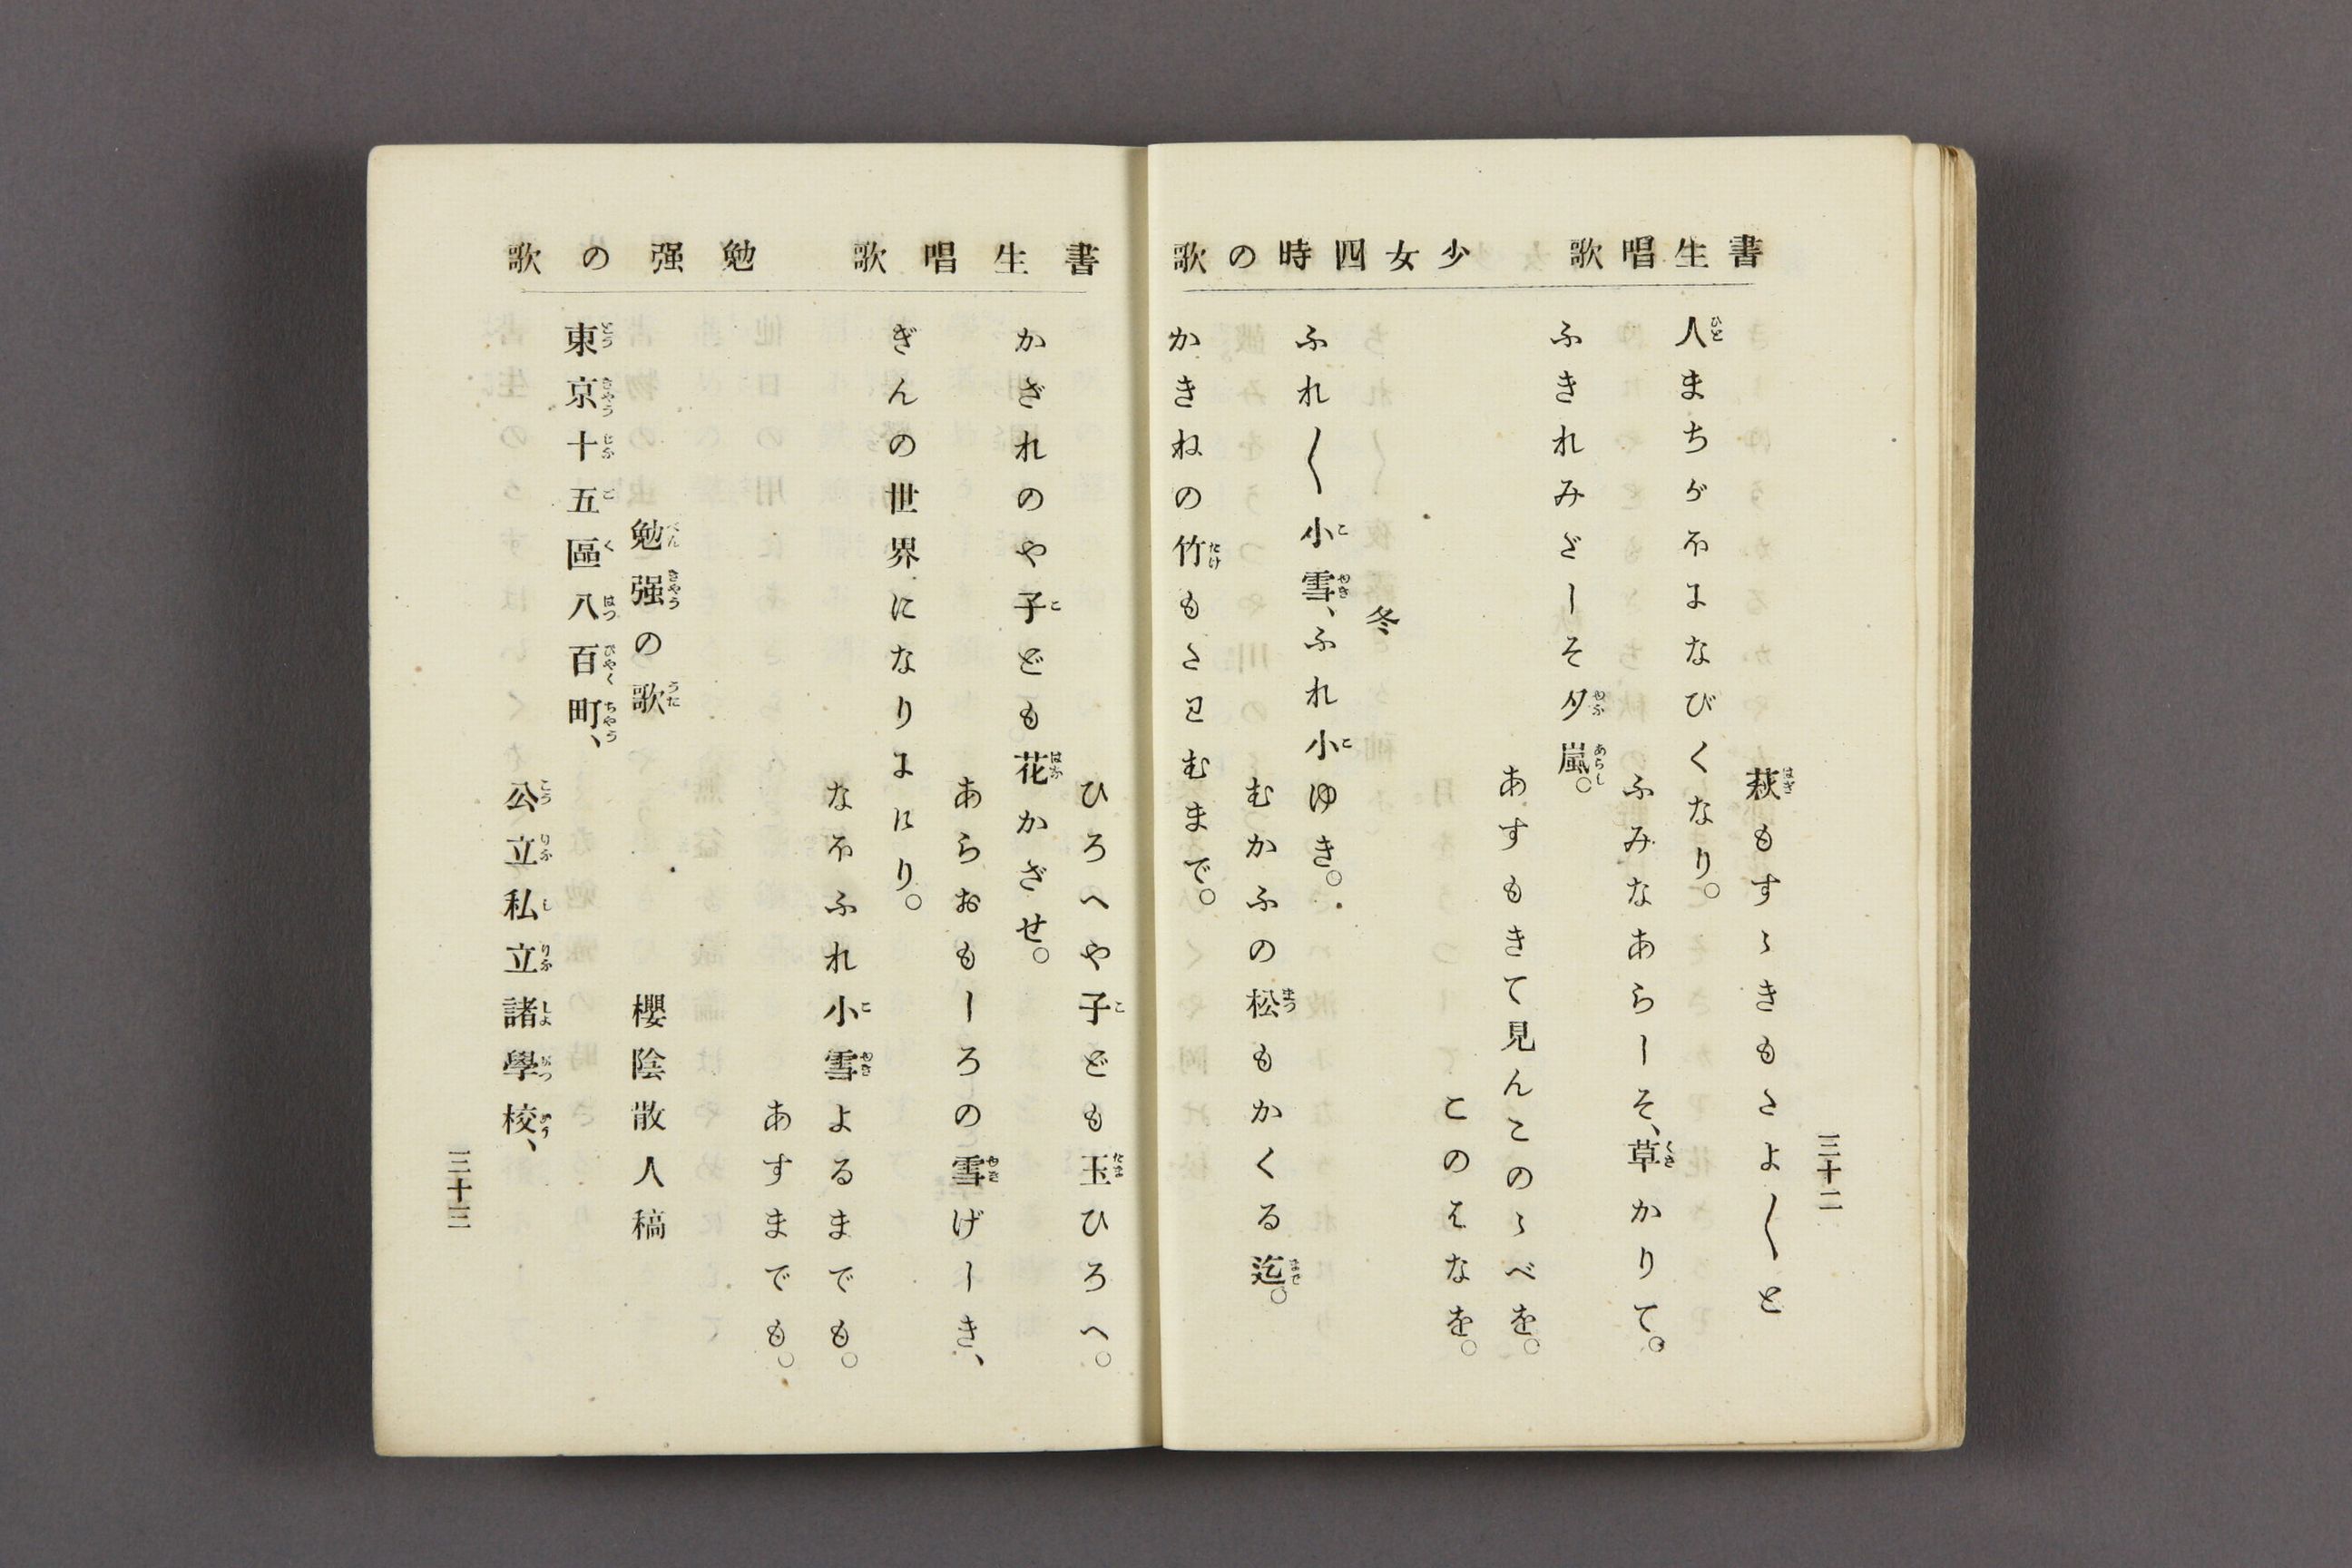 書生唱歌　少女四時の歌
三十二
萩もすゝきもさよ〳〵と
人まちがほになびくなり。
ふみなあらしそ、草かりて。
ふきれみだしそ夕嵐。
あすもきて見んこのゝべを。
このはなを。
冬
ふれ〳〵小雪、ふれ小ゆき。
むかふの松もかくる迄。
かきねの竹もたわむまで。
書生唱歌　勉强の歌
ひろへや子ども玉ひろへ。
かざれのや子ども花かざせ。
あらおもしろの雪げしき、
ぎんの世界になりにけり。
なほふれ小雪よるまでも。
あすまでも。
勉强の歌　櫻陰散人稿
東京十五區八百町、
公立私立諸學校、
三十三